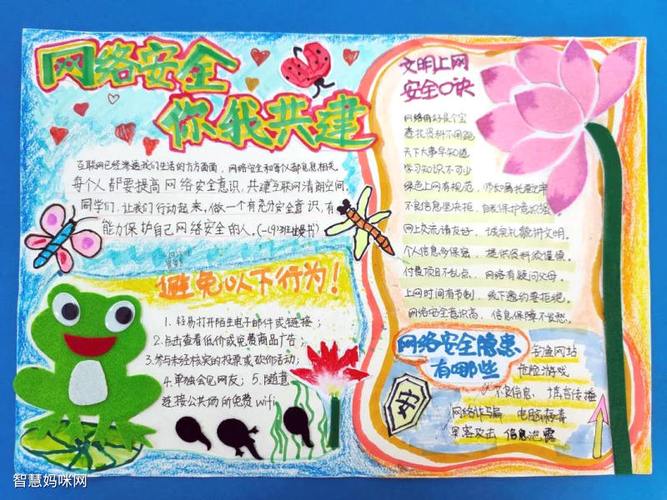 网络安全
你我共建
互联网已经渗透我们生活的方方面面，网络安全和每个人都息息相关
每个人都要提高网络安全意识，共建互联网清朗空间。
同学们，让我们行动起来，做一个有充分安全意识，有
能力保护自己网络安全的人。
避免以下行为！
1.轻易打开陌生电子邮件或链接；
2.点击查看低价或免费商品广告；
3.参与未经核实的投票或砍价活动；
4.单独会见网友；5.随意
链接公共场所免费wifi
文明上网
安全口诀
网络倒好是个宝
查找资料不用跑
天下大事早知道
学习知识不可少
绿色上网有规范，
不良信息坚决拒，自我保护意识强。
网上交流讲友好，诚实礼貌讲文明。
个人信息多保密，提供资料须谨慎。
付费项目不乱点，网络有疑问父母。
上网时间有节制，线下邀约要拒绝。
网络安全意识高，信息保障不发愁。
网络安全隐患
有哪些
钓鱼网站
危险游戏
不良信息，谣言传播
网络诈骗 电脑病毒
黑客攻击 信息泄露
安
智慧妈咪网